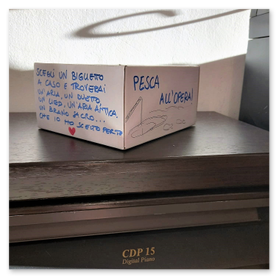 SCEGLI UN BIGLIETTO
A CASO E TROVERAI
UN'ARIA, UN DUETTO,
UN LIED, UN'ARIA ANTICA,
UN BRANO SACRO...
CHE IO HO SCELTO PER TE
PESCA
ALL'OPERA!
CDP 15
Digital Piano